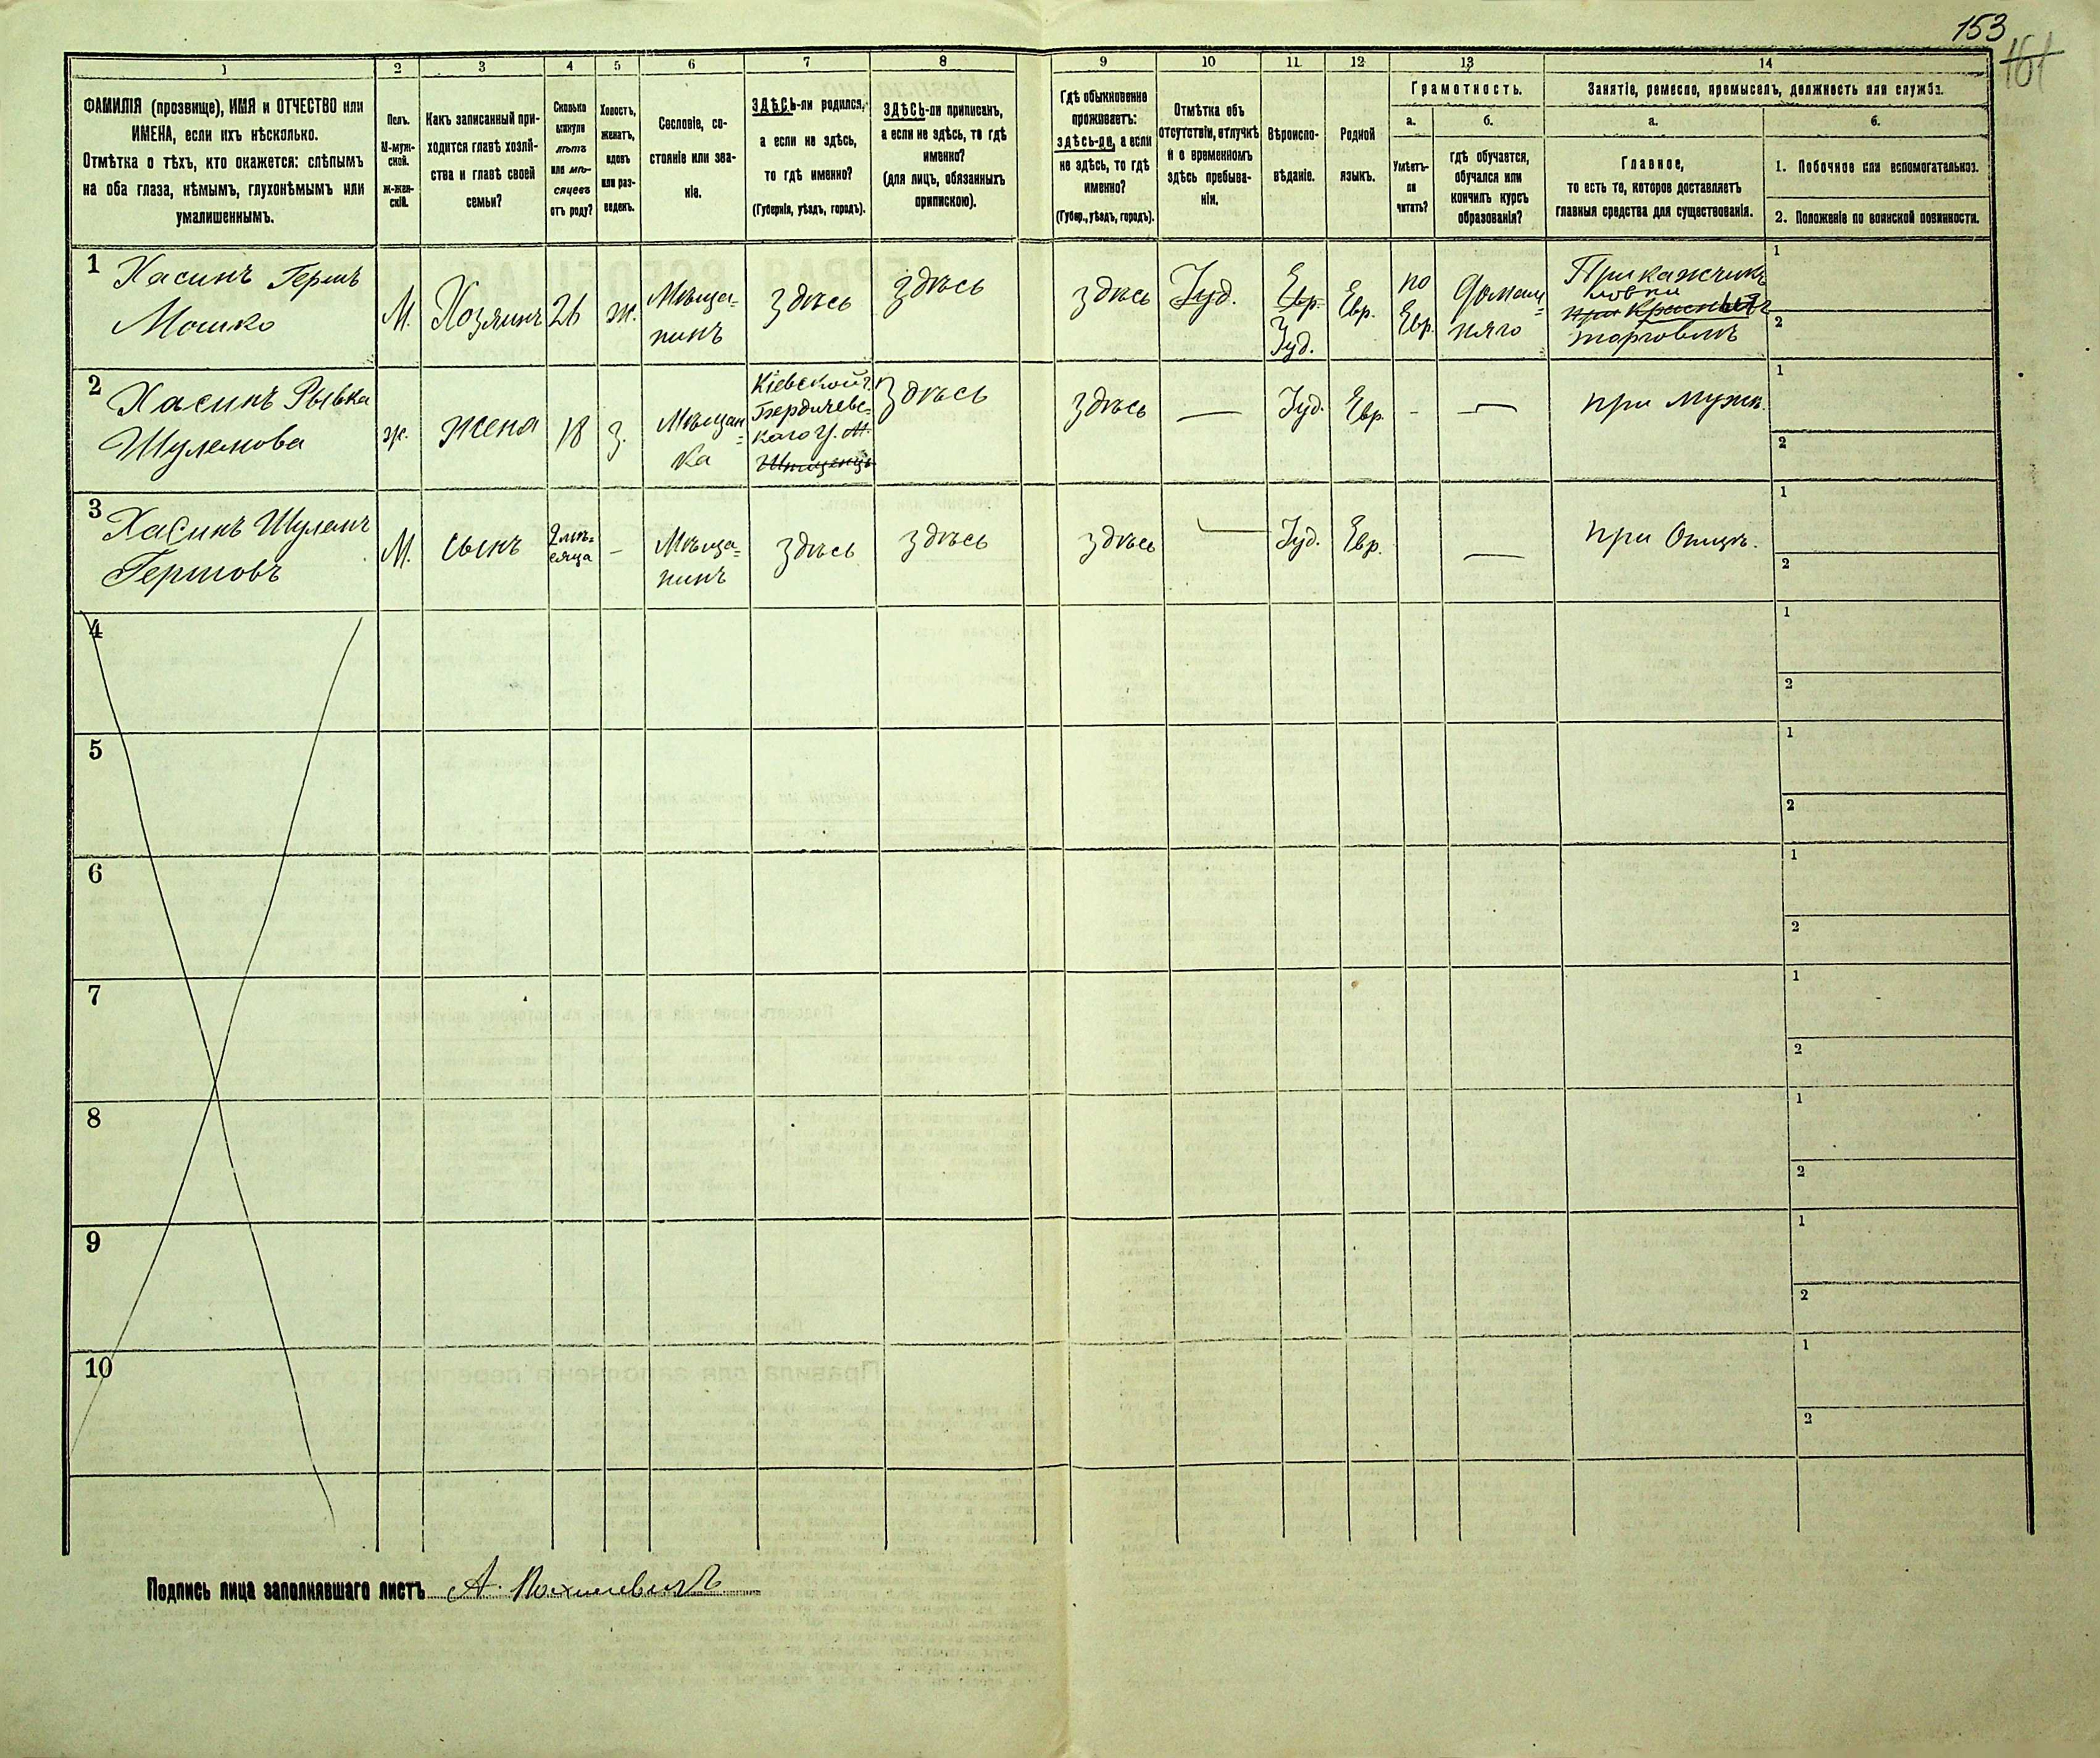 153
161
1
2
3
4
5
6
7
8
9
10
11
12
13
14
ФАМИЛІЯ (прозвище), ИМЯ и ОТЧЕСТВО или
ИМЕНА, если ихъ нѣсколько.
Отмѣтка о тѣхъ, кто окажется: слѣпымъ
на оба глаза, нѣмымъ, глухонѣмымъ или
умалишеннымъ.
Полъ.
М-муж-
ской.
ж-жен-
скій.
Какъ записанный при-
ходится главѣ хозяй-
ства и главѣ своей
семьи?
Сколько
минуло
лѣтъ
или мѣ-
сяцевъ
отъ роду?
Холостъ,
женатъ,
вдовъ
или раз-
веденъ.
Сословіе, со-
стояніе или зва-
ніе.
ЗДѢСЬ-ли родился,
а если не здѣсь,
то гдѣ именно?
(Губернія, уѣздъ, городъ).
ЗДѢСЬ-ли приписанъ,
а если не здѣсь, то гдѣ
именно?
(для лицъ, обязанныхъ
припискою).
Гдѣ обыкновенно
проживаетъ:
здѣсь-ли, а если
не здѣсь, то гдѣ
именно?
(Губер., уѣздъ, городъ).
Отмѣтка объ
отсутствіи, отлучкѣ
и о временномъ
здѣсь пребыва-
ніи.
Вѣроиспо-
вѣданіе.
Родной
языкъ.
Грамотность.
а.
Умѣетъ-
ли
читать?
б.
гдѣ обучается,
обучался или
кончилъ курсъ
образованія?
Занятіе, ремесло, промыселъ, должность или служба.
а.
Главное,
то есть то, которое доставляетъ
главныя средства для существованія.
б.
1. Побочное или вспомогательное.
2. Положеніе по воинской повинности.
1
Хасинъ Гершъ
Мошко
М.
Хозяинъ
26
ж.
Мѣща-
нинъ
здѣсь
здѣсь
здѣсь
Іуд.
Евр.
Іуд.
Евр.
по
Евр.
Домаш=
няго
Прикажчикъ
торговли
1
2
2
Хасинъ Рывка
Шулемова
ж.
жена
18
З.
Мѣщан=
ка
Кіевской г.
Бердичевс-
каго у. м.
здѣсь
здѣсь
Іуд.
Евр.
при мужѣ.
1
2
3
Хасинъ Шулемъ
Гершовъ
М.
сынъ
2 мѣ=
сяца
Мѣща=
нинъ
здѣсь
здѣсь
здѣсь
Іуд.
Евр.
при Отцѣ.
1
2
4
1
2
5
1
2
6
1
2
7
1
2
8
1
2
9
1
2
10
1
2
Подпись лица заполнявшаго листъ А.